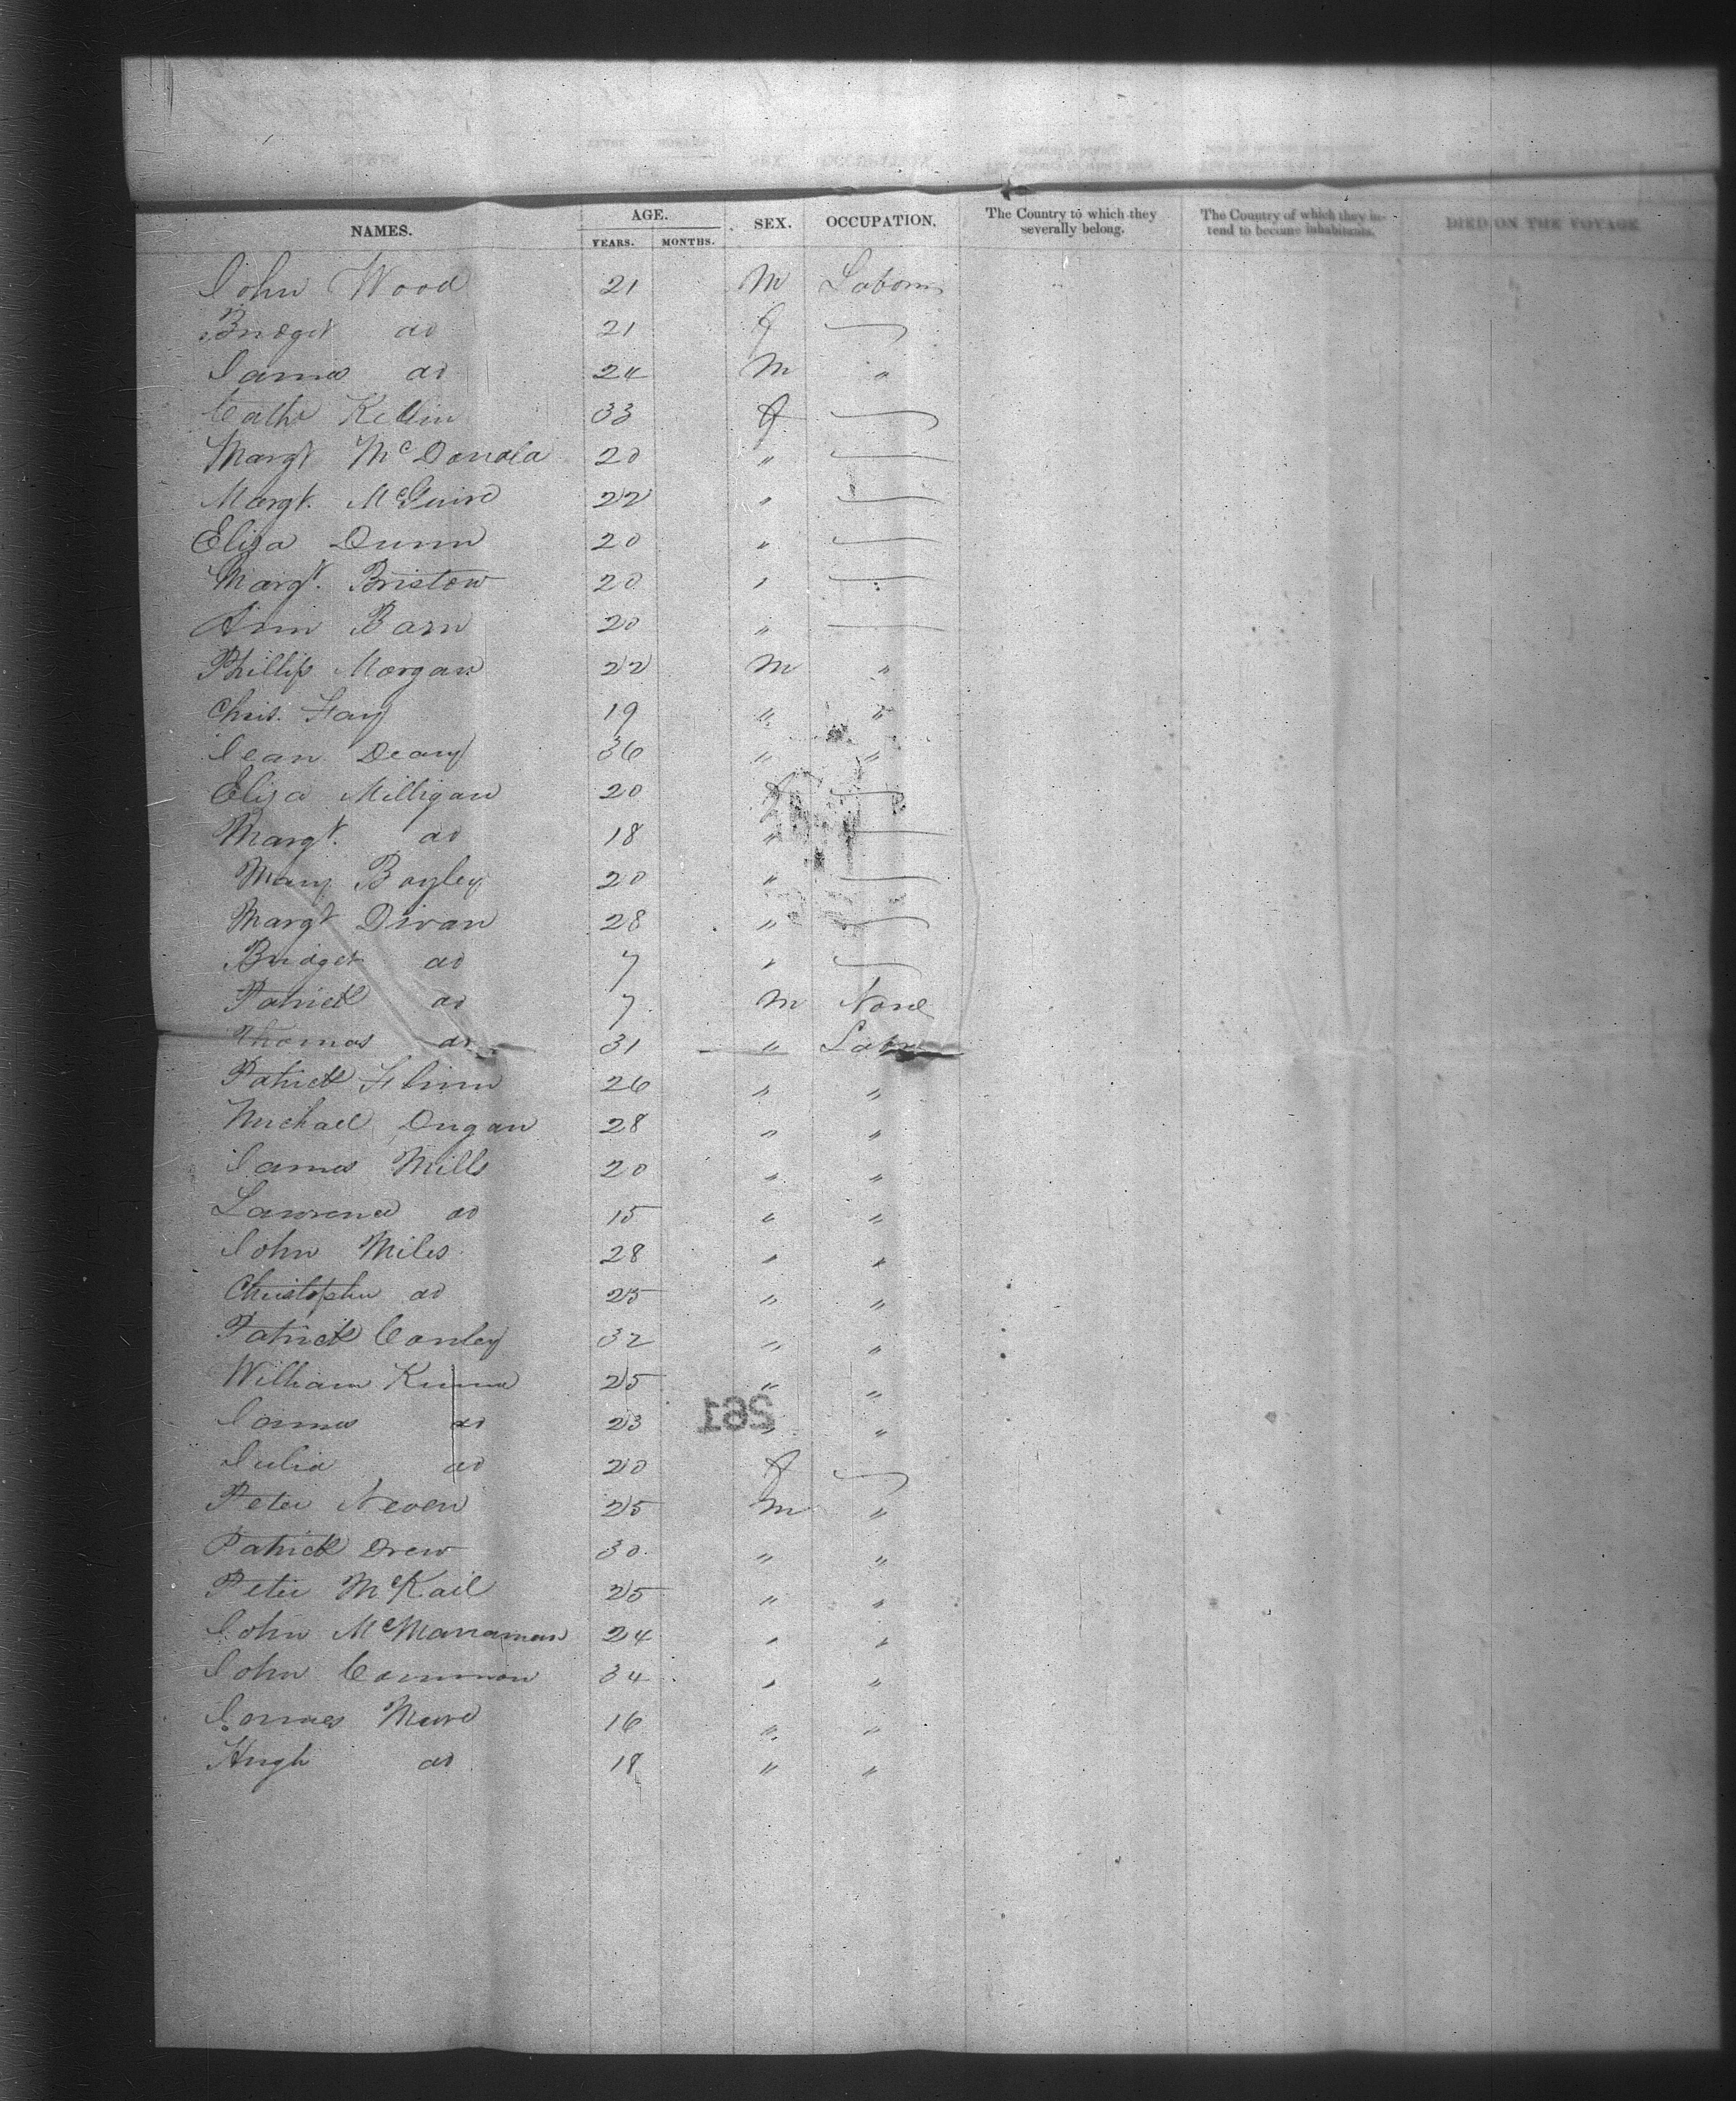 NAMES. AGE. YEARS. MONTHS. SEX. OCCUPATION. The Country to which they severally belong. The Country of which they intend to become inhabitants. DIED ON THE VOYAGE
John Wood 21 M Laborer
Bridget do 21 F
James do 24 M "
Cathe 33 F
Margt McDonald 20 "
Margt. McGuire 22 "
Eliza Dunn 20 "
Margt. Bristow 20 "
Ann Barn 20 "
Phillip Morgan 22 M "
Chris. Fay 19 " "
Jean Deary 36 " "
Eliza Milligan 20 F
Margt. do 18 "
Mary Bayley 20 "
Margt Divan 28 "
Bridget do 7 "
Patrick do 7 M None
Thomas do 31 " Labr
Patrick Flinn 26 " "
Michael Dugan 28 " "
James Mills 20 " "
Lawrence do 15 " "
John Miles 28 " "
Christopher do 25 " "
Patrick Conley 32 " "
William 25 " "
James do 23 " "
Julia do 20 F
Peter Neven 25 M "
Patrick Drew 30 " "
Peter McKail 25 " "
John McManaman 24 " "
John Common 34 " "
James Mure 16 " "
Hugh do 18 " "
261